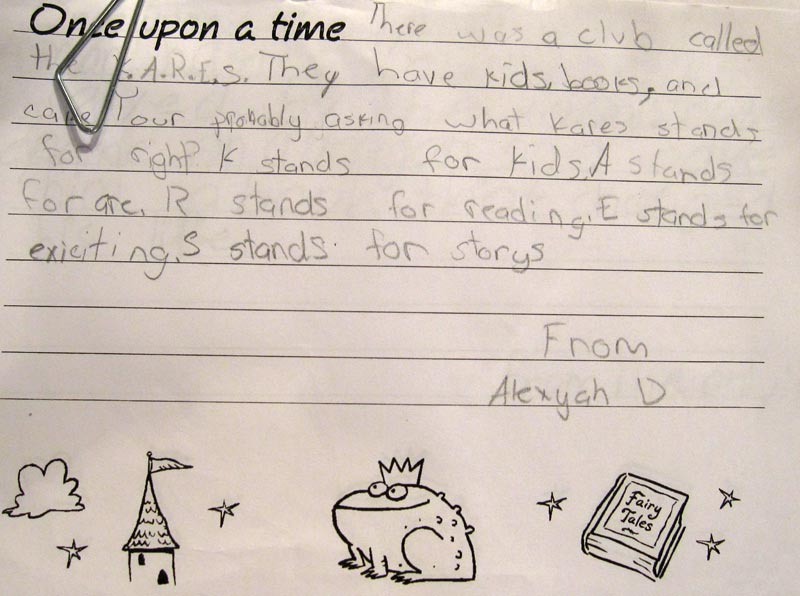 Once upon a time There was a club called
the K.A.R.E.S. They have kids, books, and
care Your probably asking what Kares stands
for right? K stands for kids, A stands
for are, R stands for reading, E stands for
exiciting, S stands for storys
From
Alexyah D
Fairy
Tales